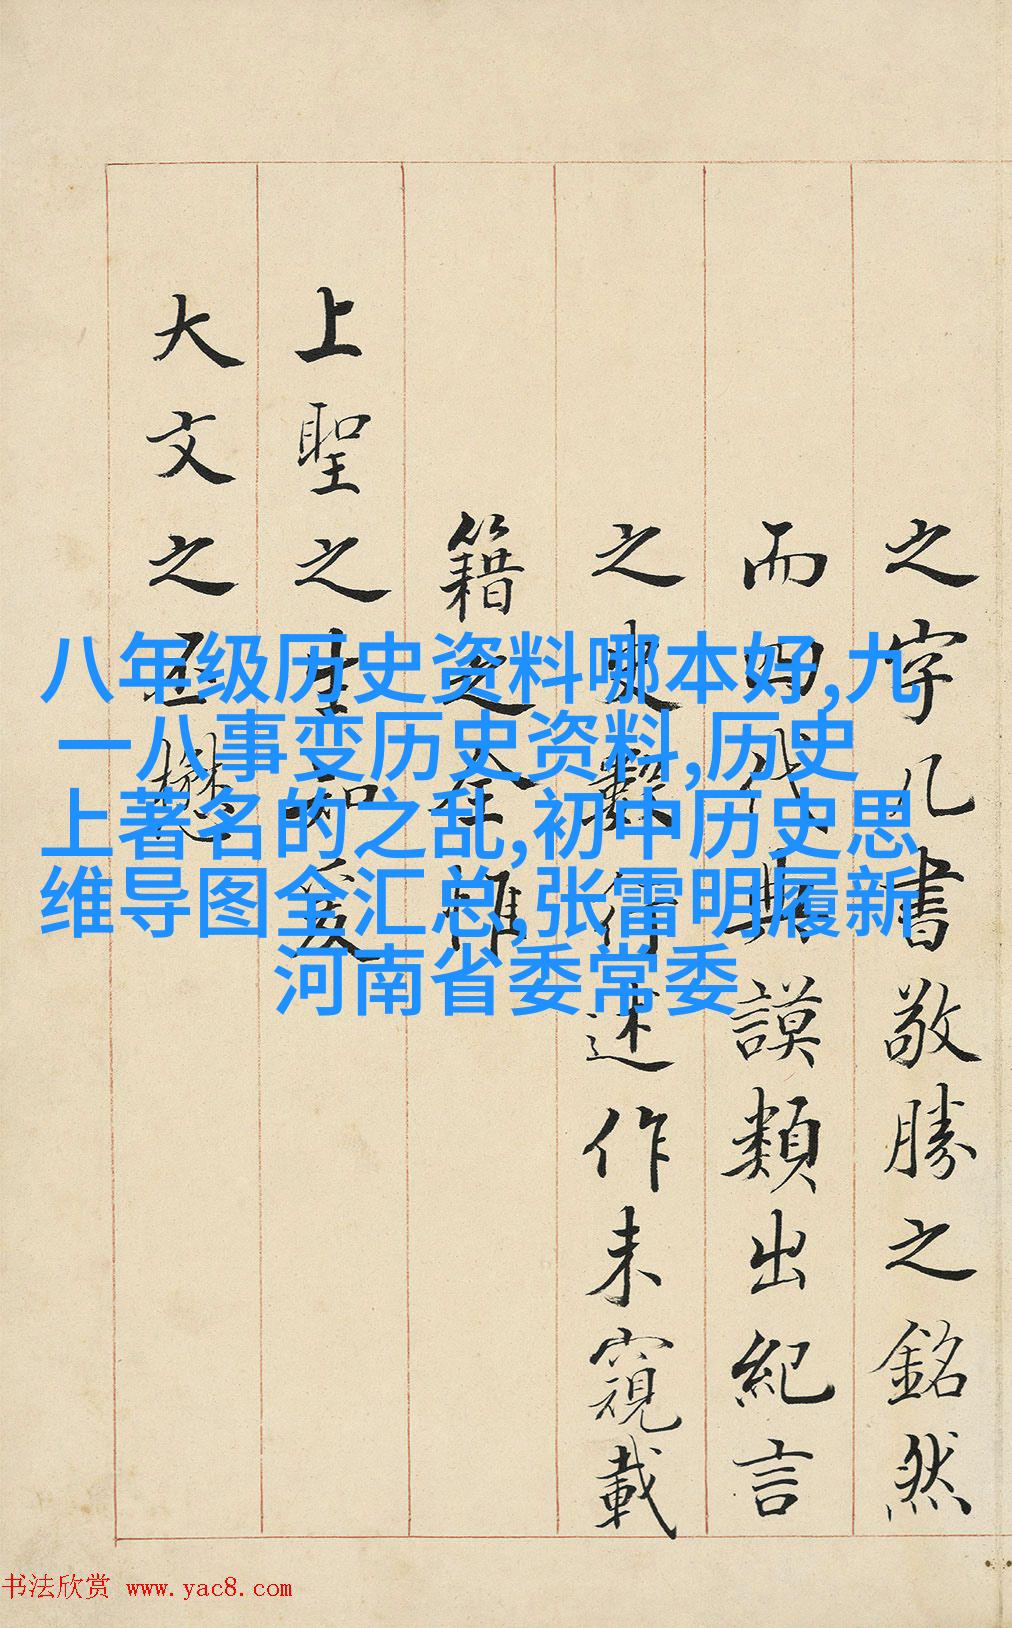 之字几書敬勝之銘然
而四代典謨類出紀言
之史述作未窺載
籍之全惟
上聖之生知爰
大文之丕
八年级历史资料哪本好,九
一八事变历史资料,历史
上著名的之乱,初中历史思
维导图全汇总,张雷明履新
河南省委常委
书法欣赏 www.yac8.com